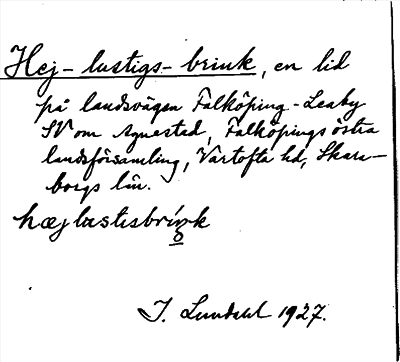 Hej-lustigs-brink, en lid
på landsvägen Falköping-Leaby
SV om Agnestad, Falköpings östra
landsförsamling, Vartofta hd, Skara-
borgs län.
hæjlustisbriŋk
I. Lundahl 1927.